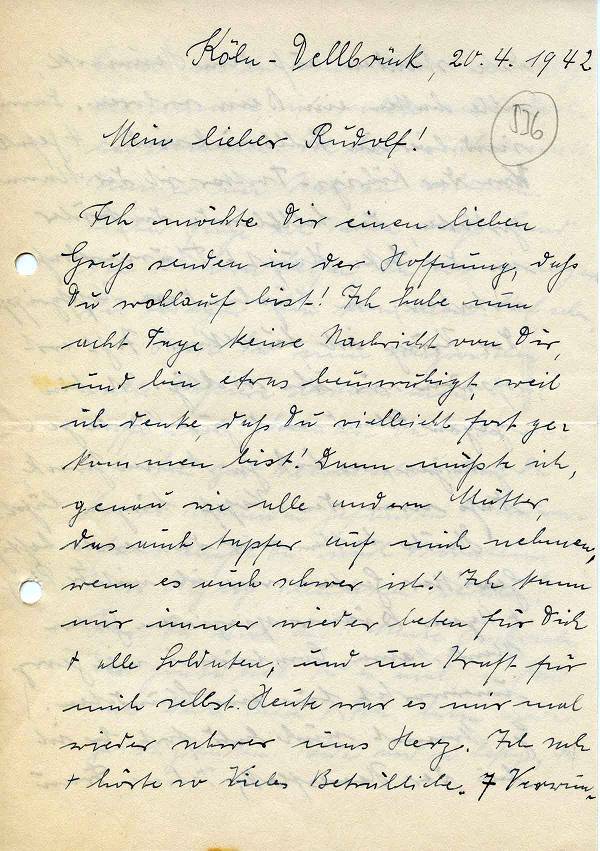 Köln-Dellbrück, 20.4.1942
536
Mein lieber Rudolf!
Ich möchte Dir einen lieben
Gruß senden in der Hoffnung, daß
Du wohlauf bist! Ich habe nun
acht Tage keine Nachricht von Dir,
und bin etwas beunruhigt, weil
ich denke, daß Du vielleicht fort ge=
kommen bist! Dann müßte ich,
genau wie alle andern Mütter,
das auch tapfer auf mich nehmen,
wenn es auch schwer ist! Ich kann
nur immer wieder beten für Dich
+ alle Soldaten, und um Kraft für
mich selbst. Heute war es mir mal
wieder schwer ums Herz. Ich sah
+ hörte so Vieles Betrübliche. 7 Verwun=